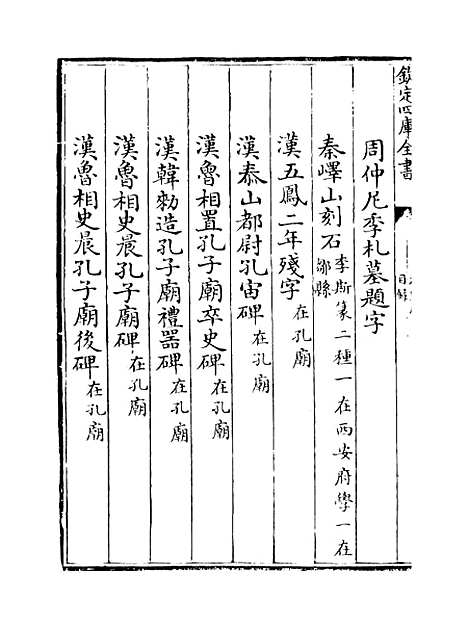 欽定四庫全書
目錄
周仲尼季札墓題字
秦嶧山刻石李斯篆二種一在西安府學一在鄒縣
漢五鳳二年殘字在孔廟
漢泰山都尉孔宙碑在孔廟
漢魯相置孔子廟卒史碑在孔廟
漢韓勑造孔子廟禮器碑在孔廟
漢魯相史晨孔子廟碑在孔廟
漢魯相史晨孔子廟後碑在孔廟